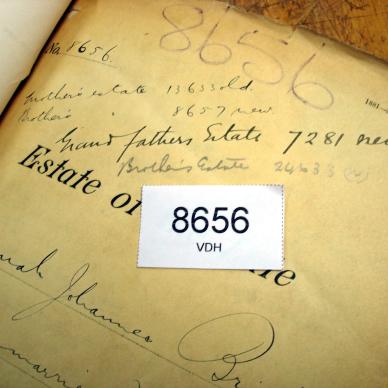 No. 8656.
8656
1881
Mother's estate 13633 old.
Brother's " 8657 new.
Grandfathers Estate 7281 new
Brother's Estate 24633
Estate of
8656
VDH
Johannes